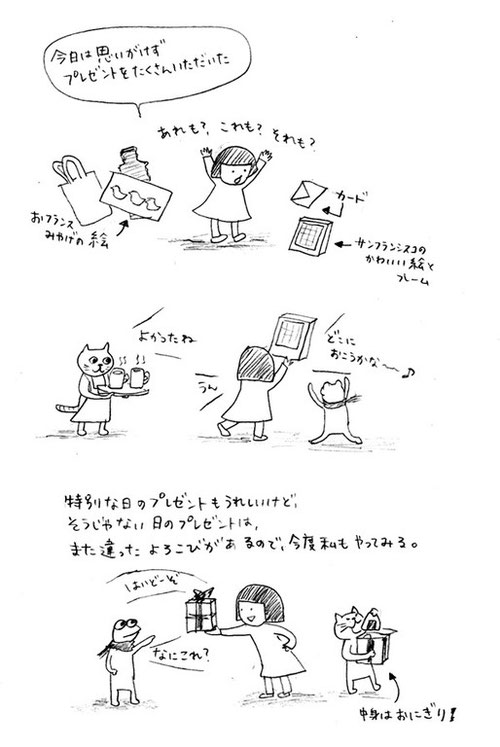 今日は思いがけず
プレゼントをたくさんいただいた
あれも?、これも?それも?
おフランス
みやげの絵
カード
サンフランシスコの
かわいい絵と
フレーム
よかったね
うん
どこに
おこうかな〜♪
特別な日のプレゼントもうれしいけど、
そうじゃない日のプレゼントは、
また違ったよろこびがあるので、今度私もやってみる。
はいどーぞ
なにこれ?
中身はおにぎり!